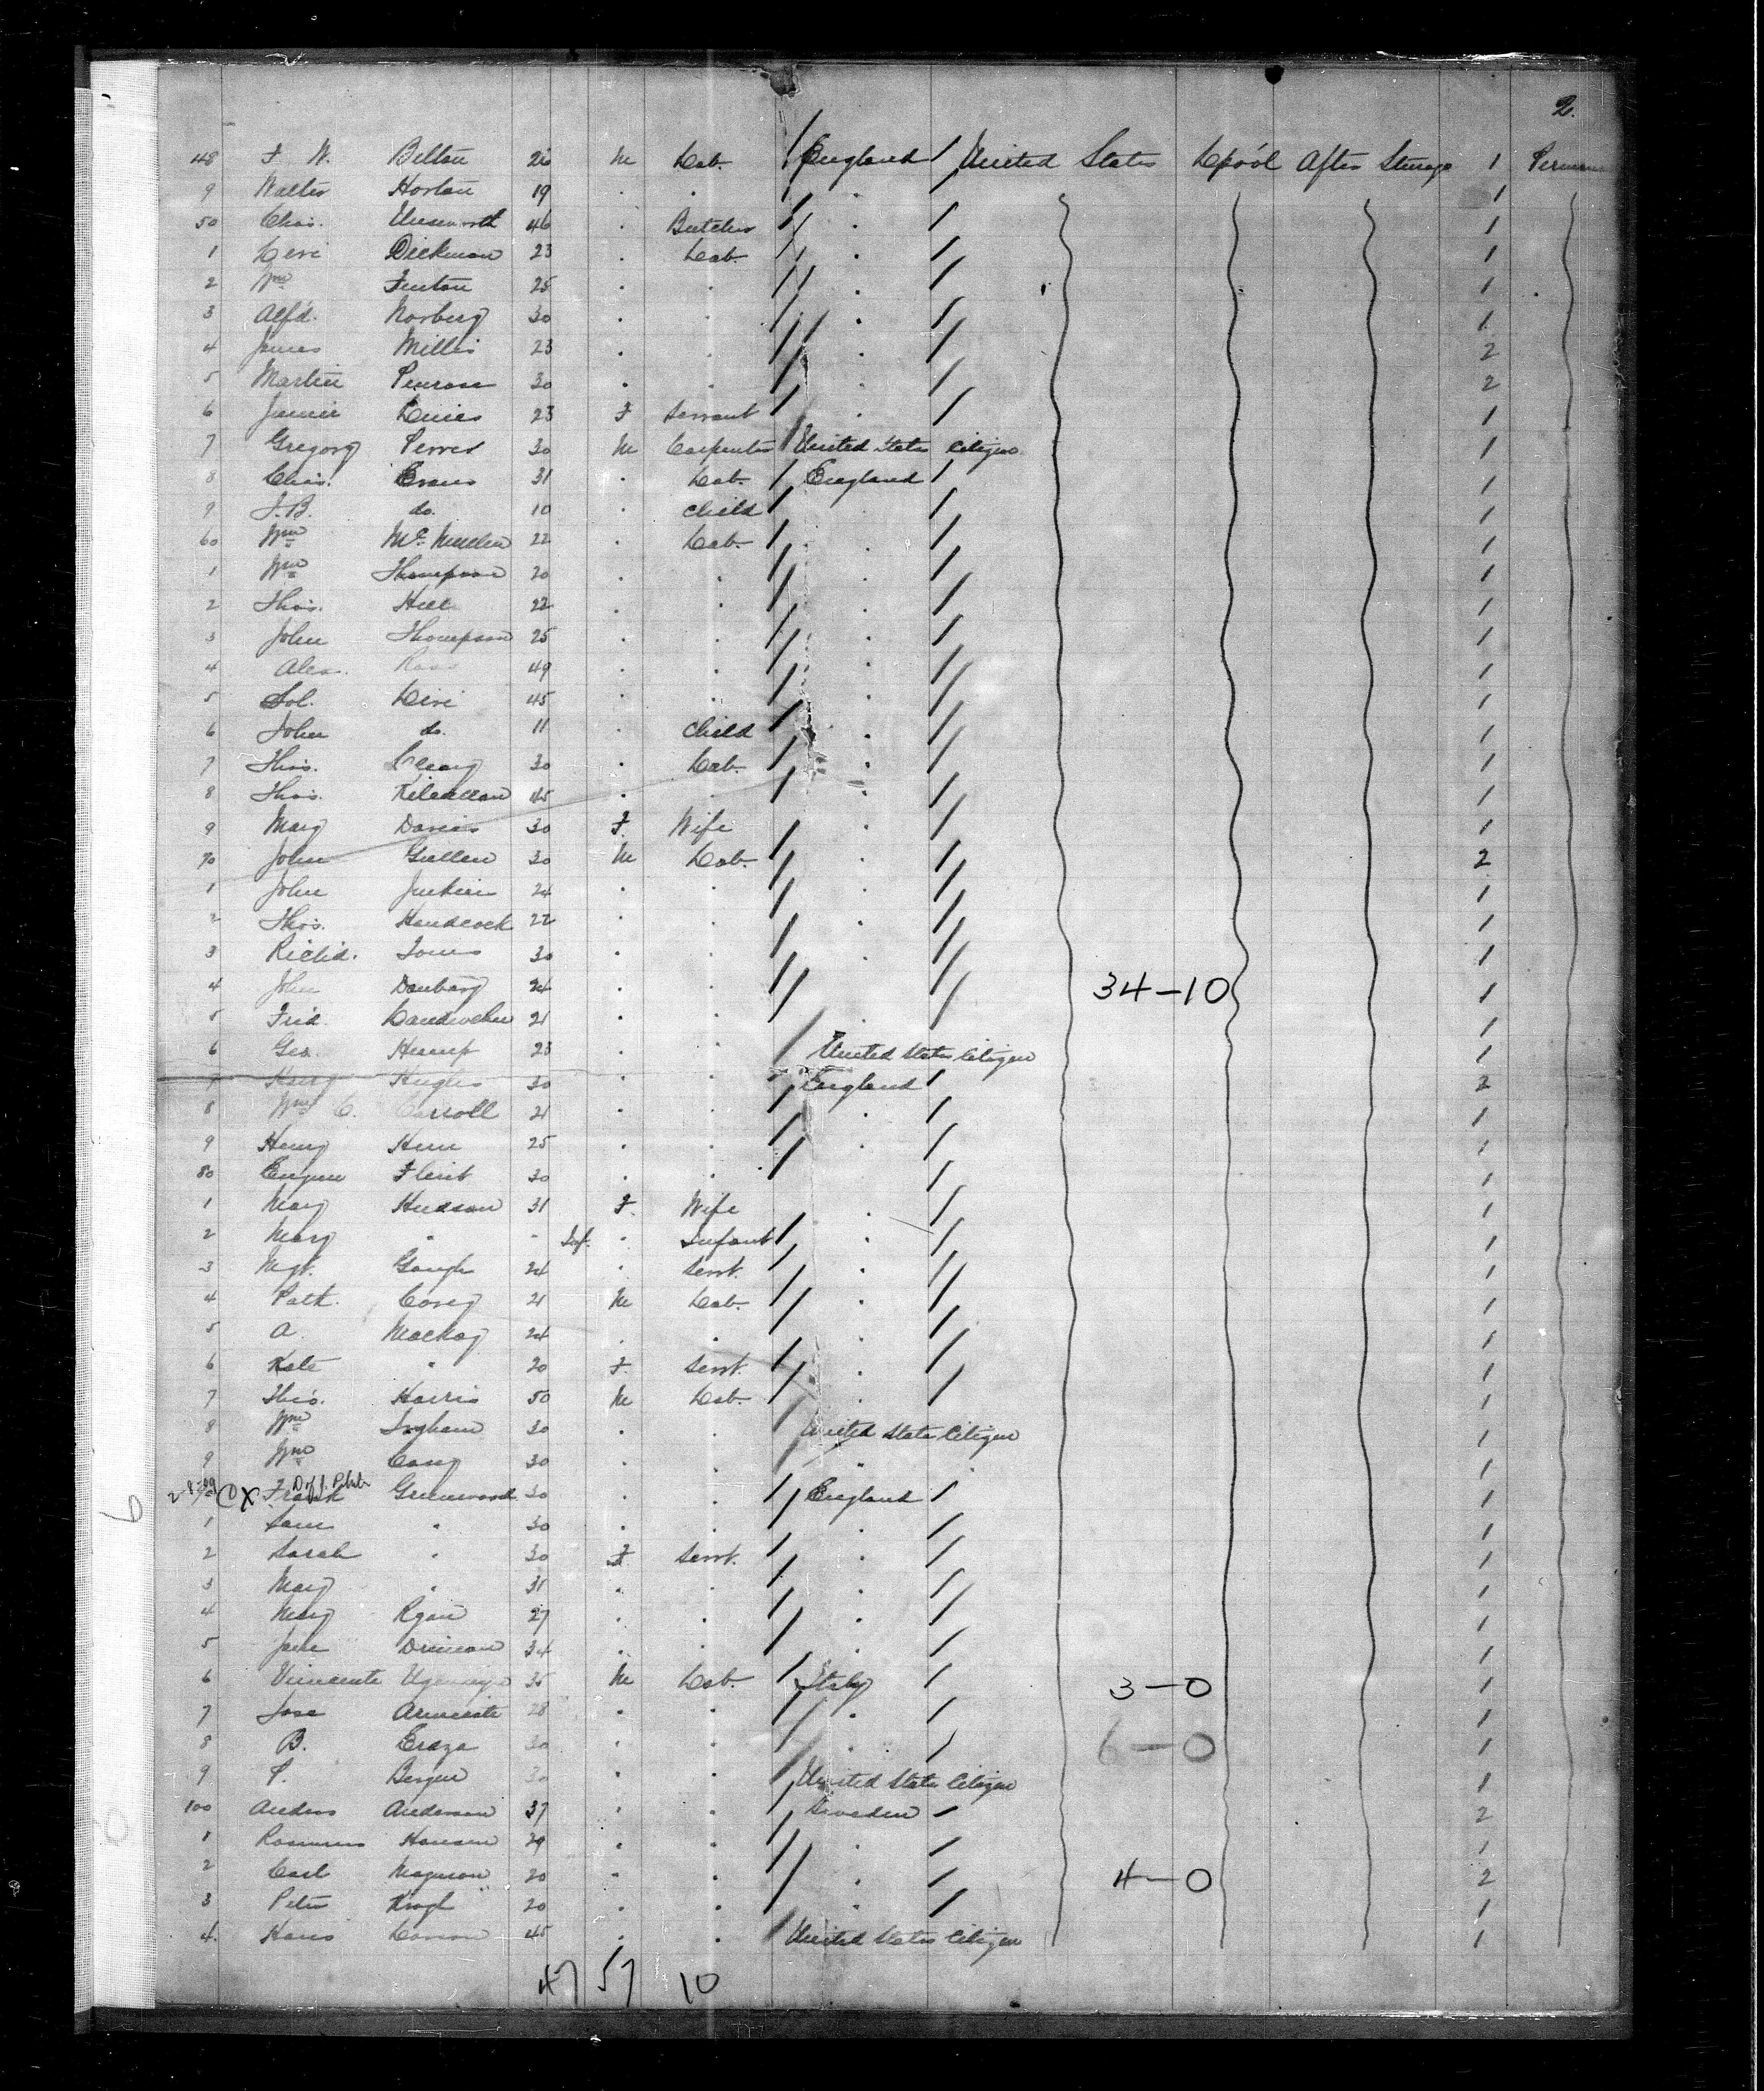 2.
48 F. W. Belton 26 M Lab. England United States L'pool After Steerage 1
9 Walter Horton 19 " " 1
50 Chas. 46 " Butcher " 1
1 Levi Dickman 23 " Lab. " 1
2 Wm Fenton 25 " " " 1
3 Alfd. Norberg 30 " " " 1
4 James Millis 23 " " " 2
5 Martin Penrose 30 " " " 2
6 Jennie 23 F Servant " 1
7 Gregory 30 M Carpenter United States Citizen 1
8 Chas. Evans 31 " Lab. England 1
9 J. B. do. 10 " Child 1
60 Wm 22 " Lab. " 1
1 Wm Thompson 20 " " " 1
2 Thos. Hill 22 " " " 1
3 John Thompson 25 " " " 1
4 Alex. Ross 49 " " " 1
5 Sol. Levi 45 " " " 1
6 John do. 11 " Child " 1
7 Thos. Cleary 30 " Lab. " 1
8 Thos. 45 " " " 1
9 Mary Davies 30 F. Wife " 1
70 John Gullen 30 M Lab. " 2
1 John Jenkins 24 " " " 1
2 Thos. Handcock 22 " " " 1
3 Richd. Jones 30 " " " 1
4 John Danberg 24 " " " 34-10 1
5 Fred. 21 " " " 1
6 Geo. Hemp 23 " " United States Citizen 1
7 Harry Hughes 30 " " England 2
8 Wm C. Carroll 21 " " " 1
9 Henry 25 " " " 1
80 Eugene Flint 30 " " 1
1 Mary Hudson 31 F. Wife " 1
2 Mary " - Inf. " Infant " 1
3 Mgt. Gough 24 " Servt. " 1
4 Patk. Corey 21 M Lab. " 1
5 A. Mackay 24 " " 1
6 Kate " 20 F. Servt. " 1
7 Thos. Harris 50 M Lab. " 1
8 Wm Ingham 30 " " United States Citizen 1
9 Wm 30 " " " 1
X Frank Greenwood 30 " " England 1
1 Sam " 30 " " " 1
2 Sarah " 30 F Servt. " 1
3 Mary " 31 " " " 1
4 Mary Ryan 27 " " " 1
5 Jane 34 " " " 1
6 35 M Lab. Italy 3-0 1
7 Jose 28 " " " 1
8 B. Eraza 30 " " " 6-0 1
9 P. Bergen 30 " " United States Citizen 1
100 Anders Anderson 37 " " Sweden 2
1 Rasmus Hansen 29 " " " 1
2 Carl Magnuson 20 " " " 4-0 2
3 Peter Krogh 20 " " " 1
4. Hans 45 " " United States Citizen 1
47 57 10